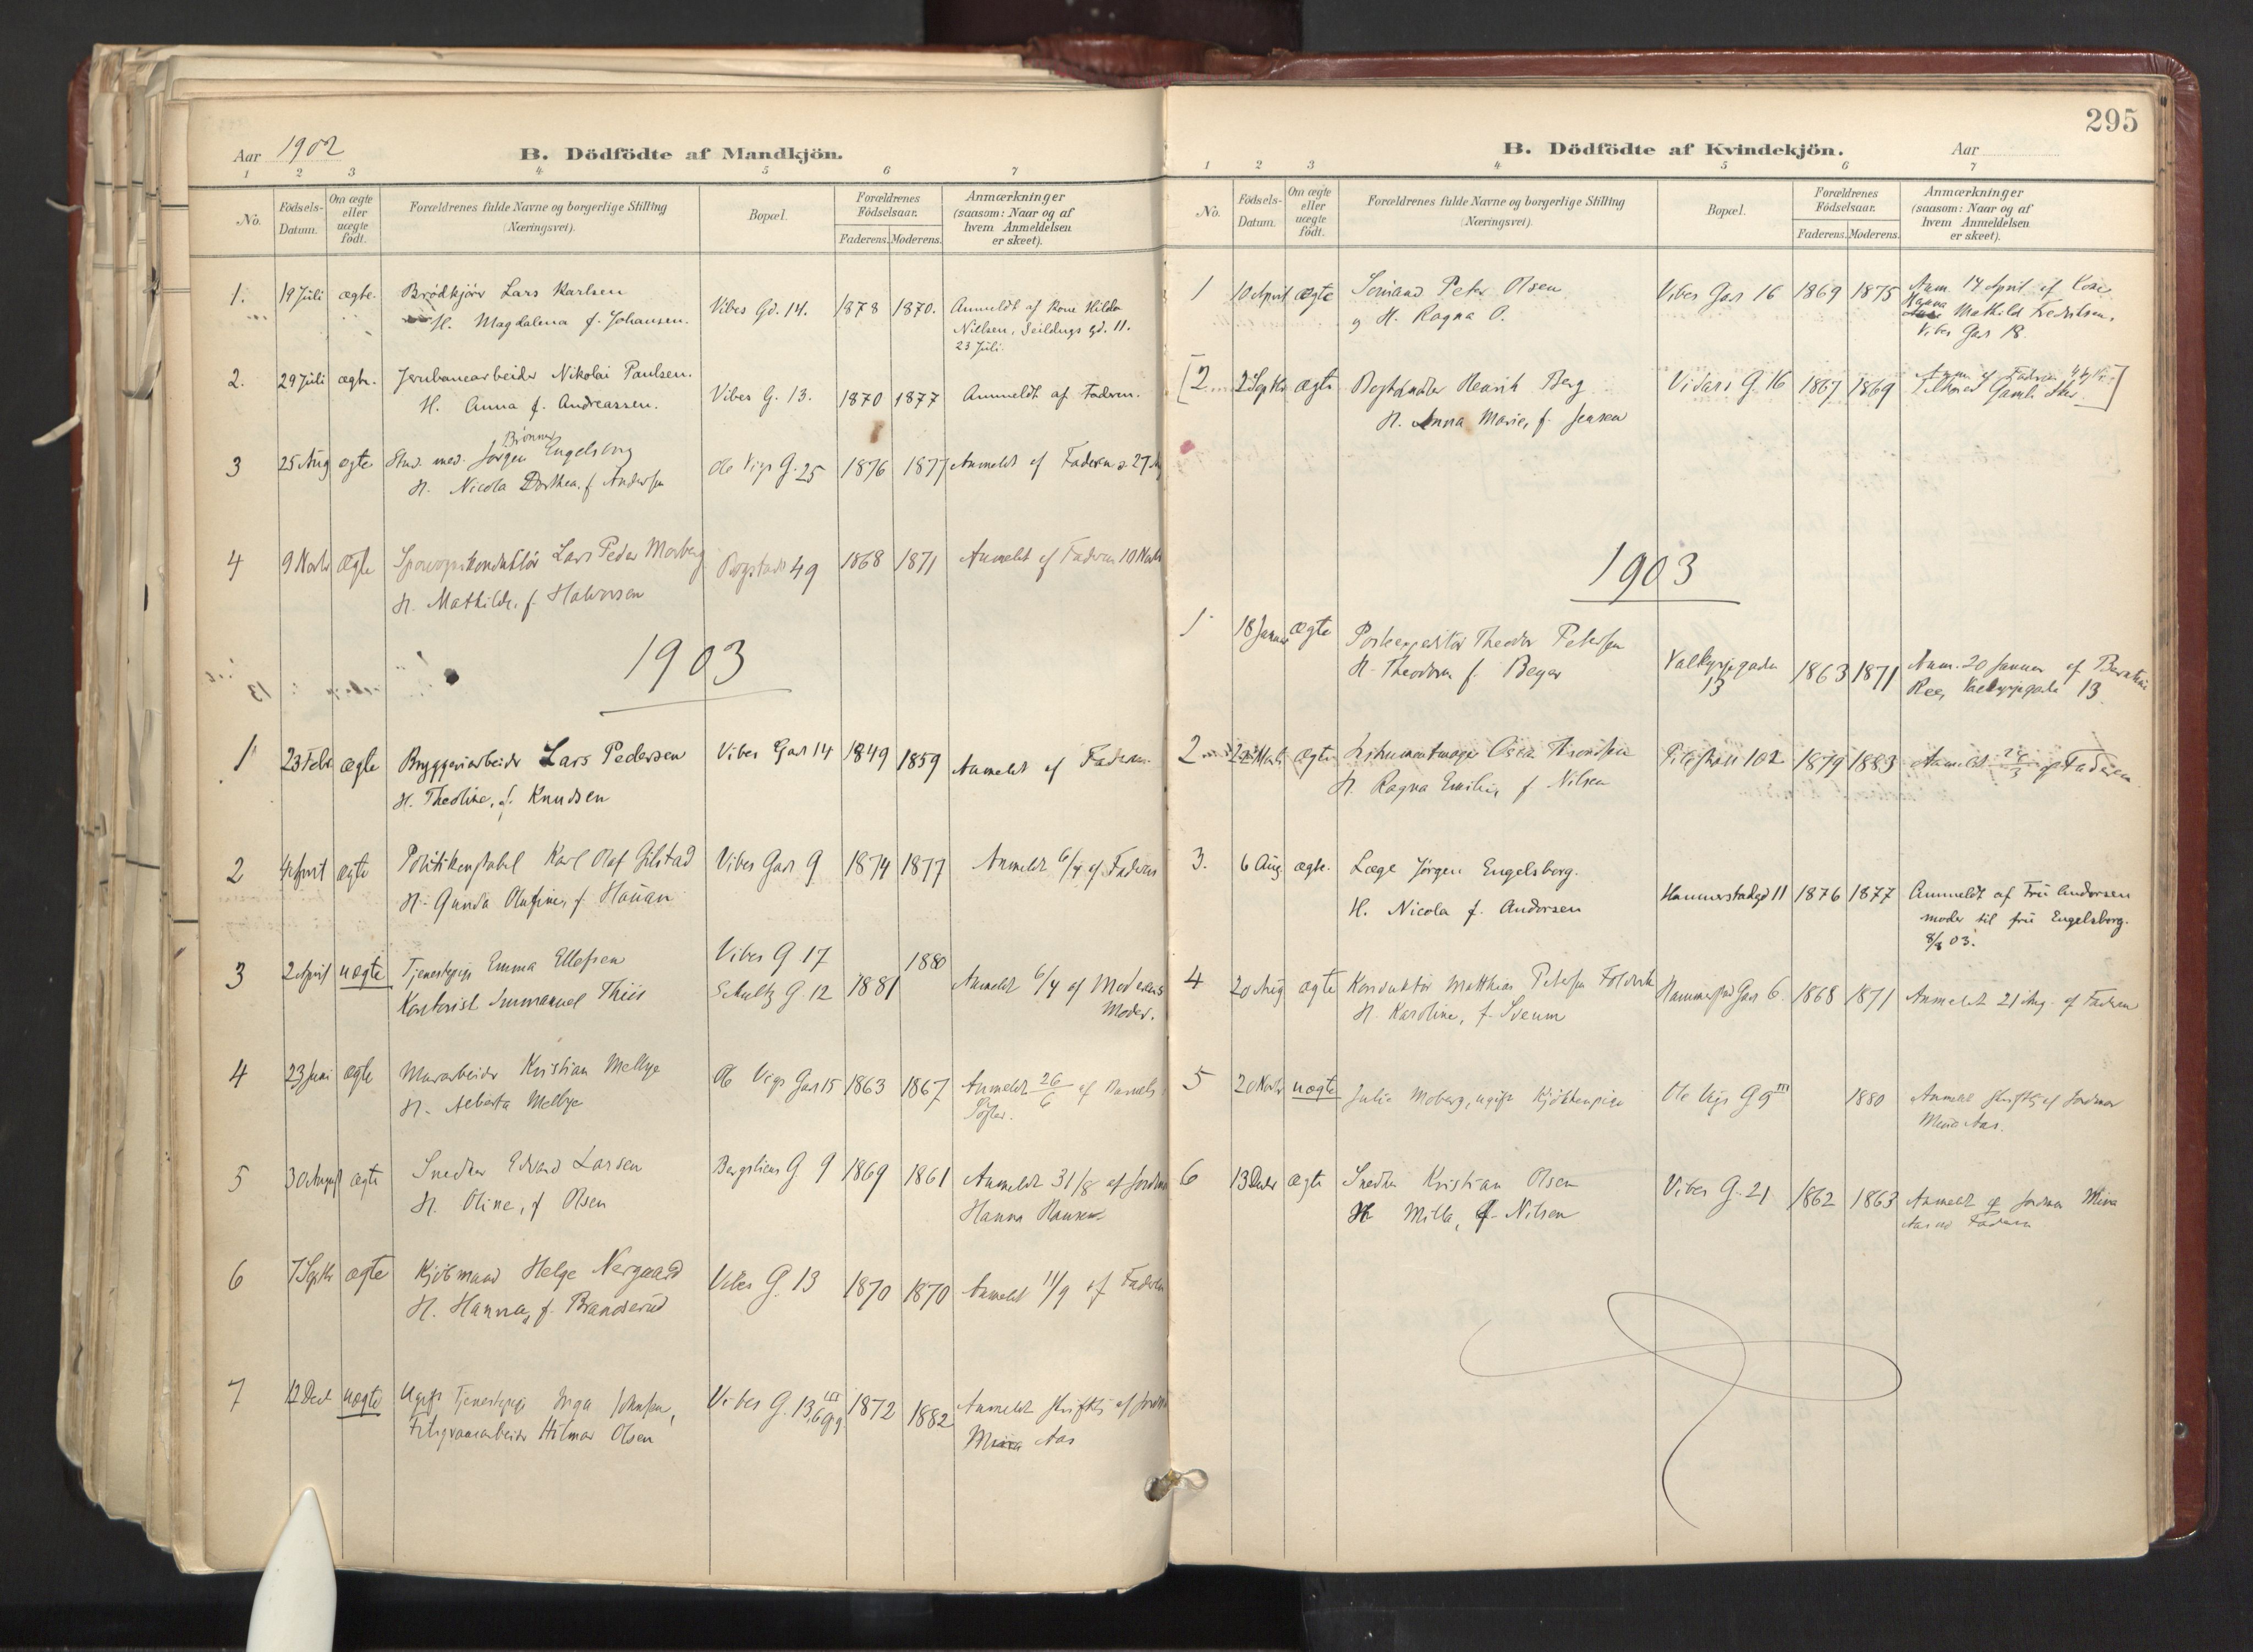 Aar 1902
B. Dödfödte af Mandkjön.
1 2 3 4 5 6 7
No.
Födsels-Datum.
Om ægte eller uægte födt.
Forældrenes fulde Navne og borgerlige Stilling (Næringsvei).
Bopæl.
Forældrenes Födselsaar.
Faderens. Moderens.
Anmærkninger (saasom: Naar og af hvem Anmeldelsen er skeet).
1. 19 Juli ægte. Brødkjører Lars Karlsen
H. Magdalena f. Johansen.
Vibes Gd. 14. 1878 1870. Anmeldt af Kone Hilda
Nielsen, Seildugs gd. 11.
23 Juli.
2. 29 Juli ægte. Jernbanearbeider Nikolai Paulsen.
H. Anna f. Andreassen.
Vibes G. 13. 1870 1877 Anmeldt af Faderen.
3 25 Aug ægte Stud. med. Jørgen Brønner Engelsborg
H. Nicola Dorthea f. Andersen
Ole Vigs G. 25 1876 1877 Anmeldt af Faderen 27
4 9 Novbr ægte Sporvognskonduktør Lars Peder Morberg
H. Mathilde, f. Halvorsen
Bogstadv 49 1868 1871 Anmeldt af Faderen 10 Novbr
1903
1 23 Feb ægte Bryggeriarbeider Lars Pedersen
H. Theoline, f. Knudsen
Vibes Gad 14 1849 1859 Anmeldt af Faderen
2 4 April ægte Politikonstabel Karl Olaf Gilstad
H. Gunda Olufine, f. Hauan
Vibes Gad 9 1874 1877 Anmeldt 6/4 af Faderen
3 2 April uægte Tjenestepige Emma Ellefsen
Kontorist Immanuel Thiis
Vibes G 17 1880
Schultz G. 12 1881 Anmeldt 6/4 af Moderens
Moder.
4 23 Juni ægte Murarbeider Kristian Melbye
H. Alberta Melbye
Ole Vigs Gad 15 1863 1867 Anmeldt 26/6 af
5 30 August ægte Snedker Edvard Larsen
H. Oline, f Olsen
Bergsliens G 9 1869 1861 Anmeldt 31/8 af Jordmor
Hanna Hansen
6 7 Septbr ægte Kjøbmand Helge Nergaard
H. Hanna, f. Brandserud
Vibes G. 13 1870 1870 Anmeldt 11/9 af Faderen
7 12 Dec uægte Ugift Tjenestepige Inga Johnsen,
Filigransarbeider Hilmar Olsen
Vibes G. 13, 1872 1882 Anmeldt skriftlig af Jordmor
Mina Aas
295
B. Dödfödte af Kvindekjön.
Aar
1 2 3 4 5 6 7
No.
Födsels-Datum.
Om ægte eller uægte födt.
Forældrenes fulde Navne og borgerlige Stilling (Næringsvei).
Bopæl.
Forældrenes Födselsaar.
Faderens. Moderens.
Anmærkninger (saasom: Naar og af hvem Anmeldelsen er skeet).
1 10 April ægte Sømand Peter Olsen
og H. Ragna O.
Vibes Gad 16 1869 1875 Anm. 14 April af Kone
Hanna Mathild Fredriksen.
Vibes Gad 18
[2 2 Septbr ægte Henrik Berg
H. Anna Marie, f. Jensen
Vidars G 16 1867 1869 Anm. af Faderen
Tilhører Gamle Aker]
1903
1 18 Januar ægte Postexpeditør Theodor Petersen
H. Theodora f. Beyer
Valkyrjegaden
13 1863 1871 Anm. 20 Januar af
Valkyrjegade 13.
2 Marts ægte Instrumentmager Oscar
H. Ragna Emilie, f Nilsen
Pilestræde 102 1879 1883 Anmeldt af Faderen
3. 6 Aug ægte. Læge Jörgen Engelsborg.
H. Nicola f. Andersen
Hammerstadgd 11 1876 1877 Anmeldt af Fru Andersen
moder til fru Engelsborg.
8/8 03.
4 20 Aug ægte Konduktør Matthias Petersen
H. Karoline, f. Sveum
Hammerstad Gad 6. 1868 1871 Anmeldt 21 Aug. af Faderen
5 20 Novbr uægte Julie Moberg, ugift Kjøkkenpige
Ole Vigs G 9 III 1880 Anmeldt skriftlig af Jordmor
Mina Aas.
6 13 Decbr ægte Snedker Kristian Olsen
H. Milla, f. Nilsen
Vibes G. 21 1862 1863 Anmeldt af Jordmor Mina
Aas